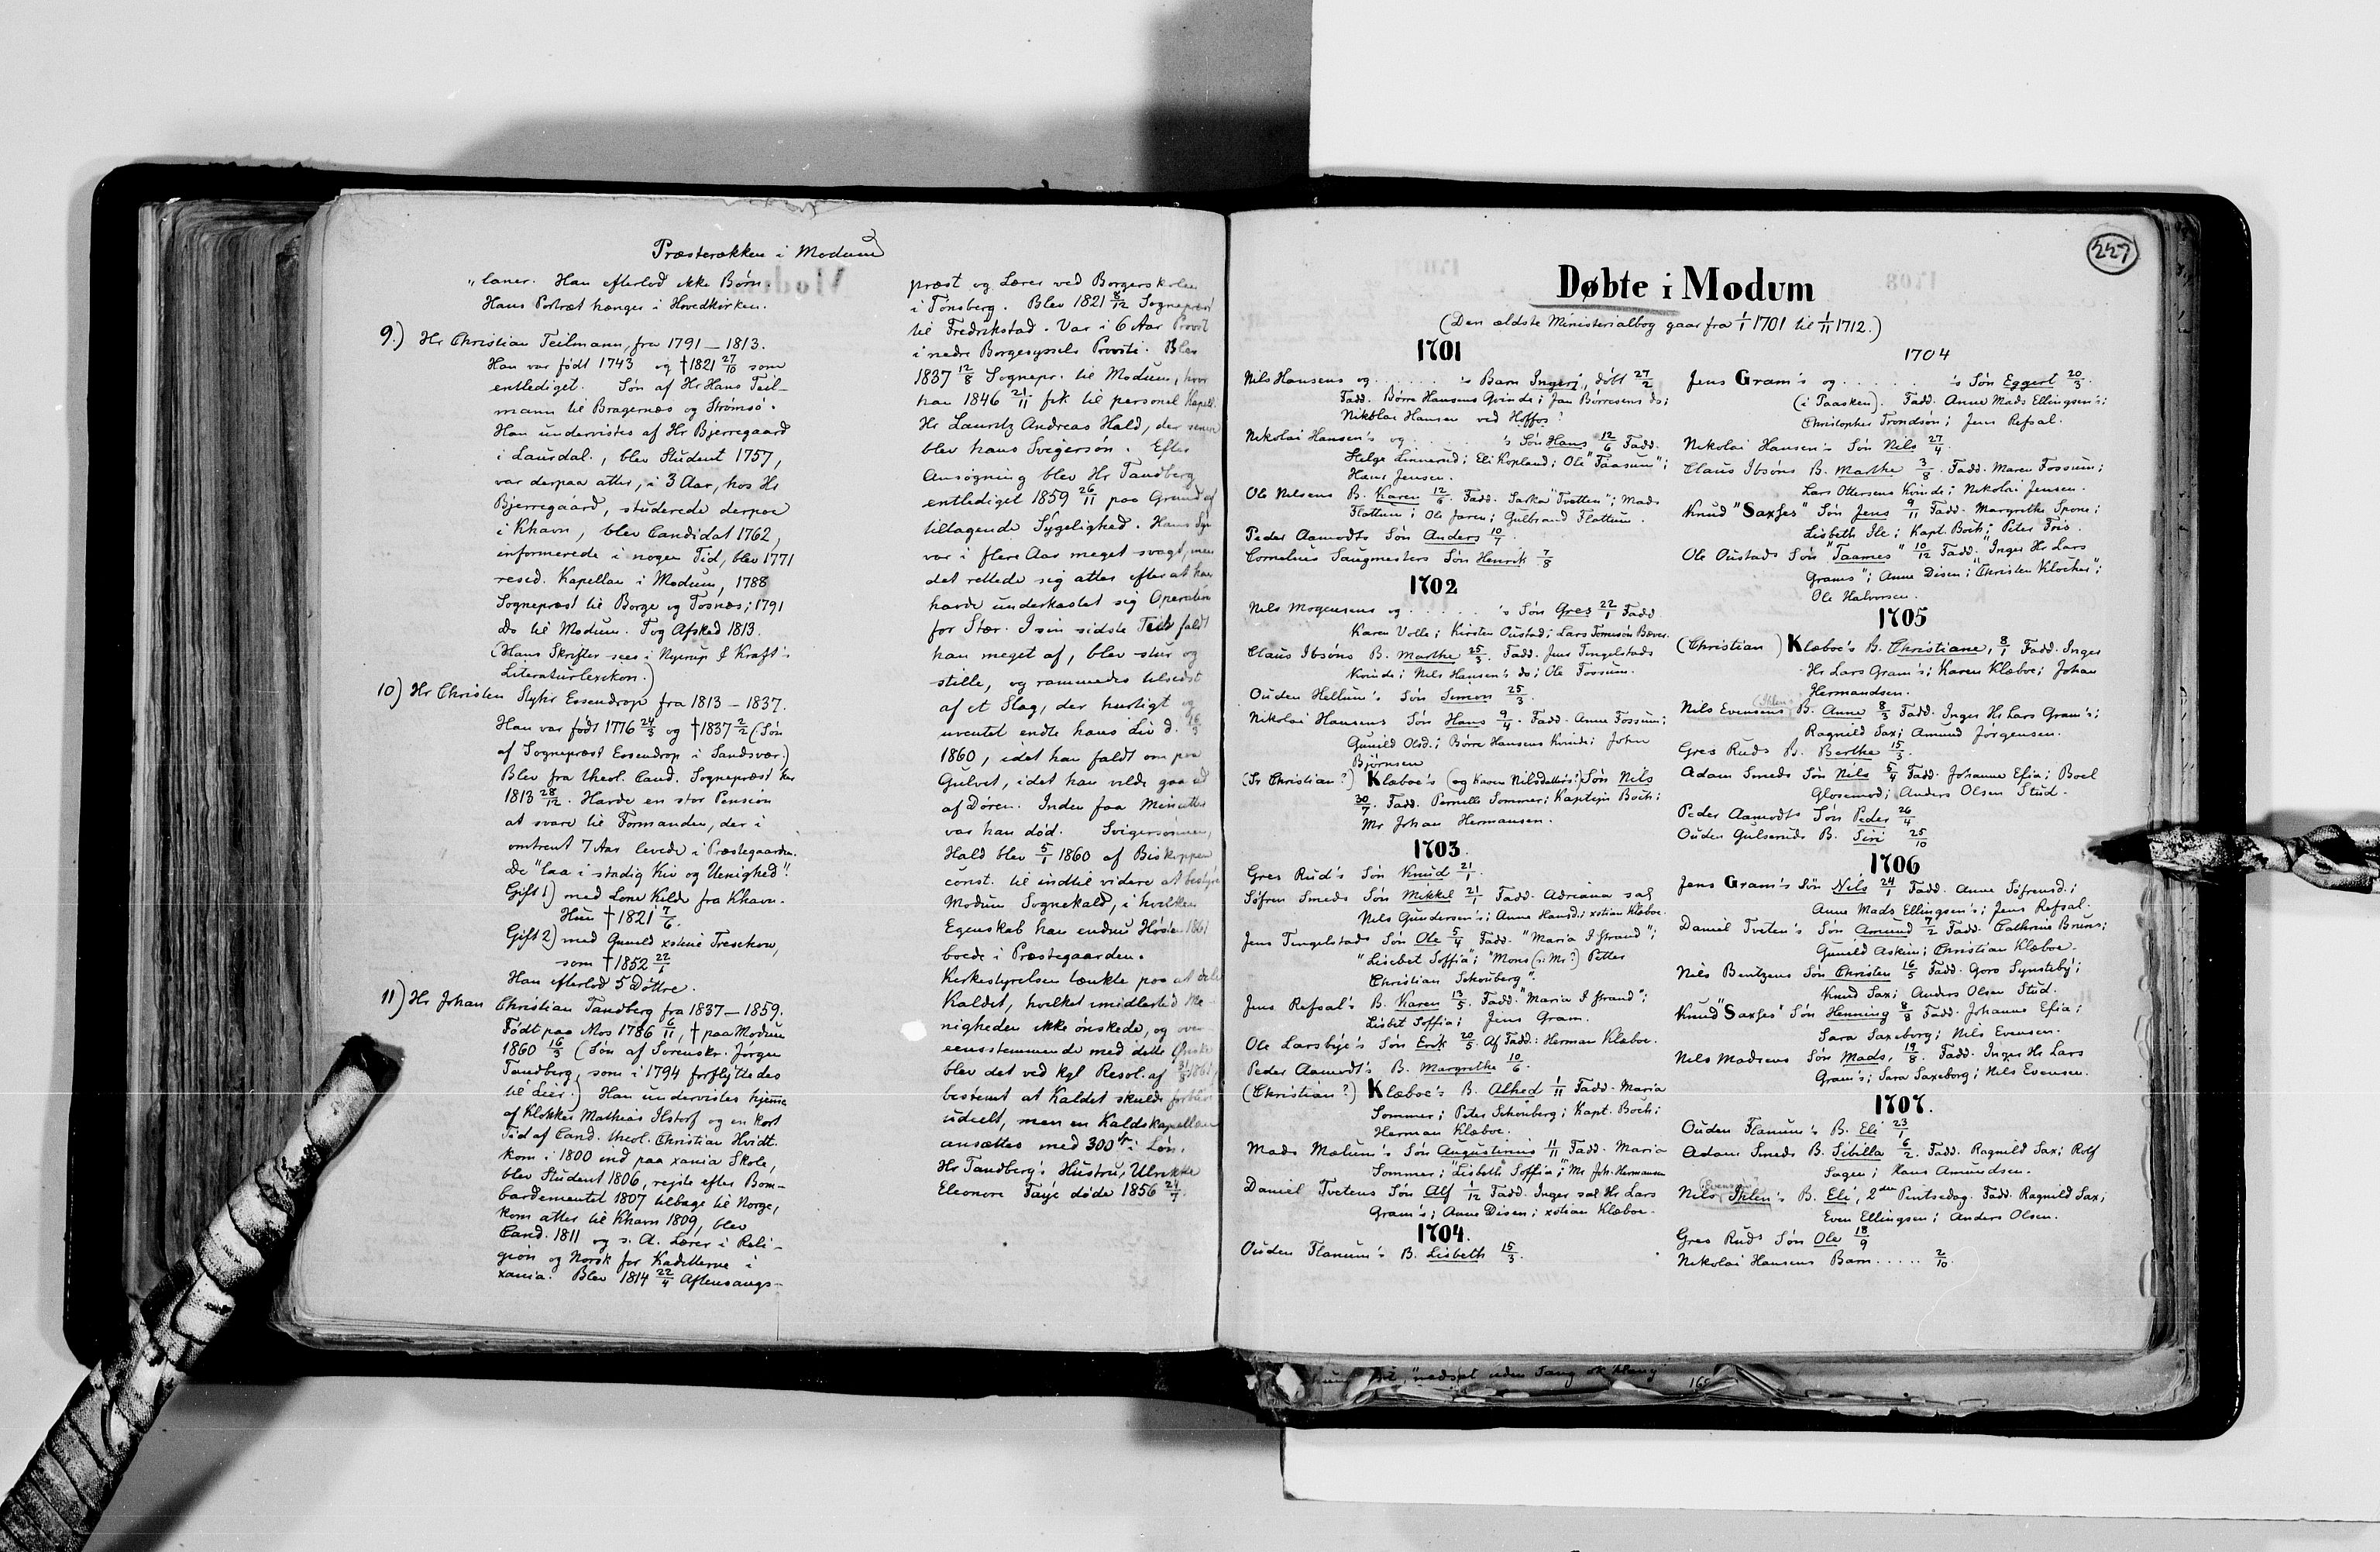 Præsterækken i Modum
"laner. Han efterlod ikke Børn.
Hans Portræt hænger i Hovedkirken.
9.) Hr Christian Teilmann, fra 1791 – 1813.
Han var født 1743 og †1821 27/10 som
entlediget. Søn af Hr Hans Teil-
mann til Bragernæs og Strømsø.
Han undervistes af Hr Bjerregaard
i Laurdal., blev Student 1757,
var derpaa atter, i 3 Aar, hos Hr
Bjerregaard, studerede derpaa
i Khavn, blev Candidat 1762,
informerede i nogen Tid, blev 1771
resid. Kapellan i Modum, 1788
Sognepræst til Borge og Tosnæs; 1791
do til Modum. Tog Afsked 1813.
(Hans Skrifter sees i Nyerup & Kraft's
Literaturlexikon.)
10) Hr Christen Stykr Essendrop fra 1813 – 1837.
Han var født 1776 24/3 og †1837 2/2 (Søn
af Sognepræst Essendrop i Sandsvær)
Blev fra theol. Cand. Sognepræst her
1813 28/12. Havde en stor Pension
at svare til Formanden, der i
omtrent 7 Aar levede i Præstegaarden.
De "laa i stadig Kiv og Uenighed".
Gift 1) med Lone Kilde fra Khavn.
Hun † 1821 7/6.
Gift 2) med Gunild xstine Treschow,
som †1852 22/1
Han efterlod 5 Døttre.
11) Hr Johan Christian Tandberg fra 1837 – 1859.
Født paa Mos 1786 6/11, † paa Modum
1860 16/3 (Søn af Sorenskr. Jørgen
Tandberg, som i 1794 forflyttedes
til Lier.) Han undervistes hjemme
af Klokker Mathias Ilstof og en kort
Tid af Cand. theol. Christian Hvidt.
kom i 1800 ind paa xania Skole,
blev Student 1806, rejste efter Bom-
bardementet 1807 tilbage til Norge,
kom atter til Khavn 1809, blev
Cand. 1811 og s. A. Lærer i Reli-
gion og Norsk for Kadetterne i
xania. Blev 1814 22/4 Aftensangs-
præst og Lærer ved Borgerskolen
i Tønsberg. Blev 1821 8/12 Sognepræst
til Fredrikstad. Var i 6 Aar Provst
i nedre Borgesyssels Provsti. Blev
1837 12/8 Sognepr. til Modum, hvor
han 1846 21/11 fik til personel Kapell.
Hr Lauritz Andreas Hald, der senere
blev hans Svigersøn. Efter
Ansøgning blev Hr Tandberg
entlediget 1859 26/11 paa Grund af
tiltagende Sygelighed. Hans Syn
var i flere Aar meget svagt, men
det rettede sig atter efter at han
havde underkastet sig Operation
for Stær. I sin sidste Tid faldt
han meget af, blev stur og
stille, og rammedes tilsidst
af et Slag, der hurtigt og
uventet endte hans Liv d. 16/3
1860, idet han faldt om paa
Gulvet, idet han vilde gaa ud
af Døren. Inden faa Minutter
var han død. Svigersønnen,
Hald blev 5/1 1860 af Biskoppen
const. til indtil videre at bestyre
Modum Sognekald, i hvilken
Egenskab han endnu Høsten 1861
boede i Præstegaarden.
Kirkestyrelsen tænkte paa at dele
Kaldet, hvilket imidlertid Me-
nigheden ikke ønskede, og over
eensstemmende med dette Ønske
blev det ved kgl Resol. af 31/8 1861
bestemt at Kaldet skulde forblive
udeelt, men en Kaldskapellan
ansættes med 300 i Løn.
Hr Tandberg's Hustru, Ulrikke
Eleonore Faye døde 1856 24/7.
227
Døbte i Modum
(Den ældste Ministerialbog gaar fra 1/1 1701 til 1/11 1712.)
1701
Nils Hansens og . . . . . . . 's Barn Ingeri, døbt 27/2
Fadd. Børre Hansens Qvinde; Jan Børresens do;
Nikolai Hansen ved Hoffos!
Nikolai Hansen's og . . . . . . 's Søn Hans 12/6 Fadd.
Helge Linnerud; Eli Kopland; Ole "Taasum";
Hans Jensen.
Ole Nilsens B. Karen 12/6. Fadd. Sarka "Tvetten"; Mads
Flattum; Ole Jaren; Gulbrand Flattum.
Peder Aamodts Søn Anders 10/7.
Cornelius Saugmesters Søn Henrik 7/8
1702
Nils Mogensens og . . . . . . 's Søn Gres 22/1 Fadd.
Karen Volle; Kirsten Oustad; Lars Tomesøn Bæver.
Claus Ibsøns B. Marthe 25/3. Fadd. Jens Tingelstads
Kvinde; Nils Hansen's do; Ole Fossum.
Ouden Hellum's Søn Simon 25/3.
Nikolai Hansens Søn Hans 9/4. Fadd. Anne Fossum;
Gunild Olsd.; Børre Hansens Kvinde; John
Bjørnsen
(Sr Christian?) Klæboe's (og Karen Nilsdatters?) Søn Nils
30/7. Fadd. Pernelle Sommer; Kaptejn Boch;
Mr Johan Hermansen.
1703
Gres Rud's Søn Knud 21/1.
Söfren Smeds Søn Mikkel 21/1 Fadd. Adriana sal
Nils Gundersen's; Anne Hansd.; xstian Klæboe.
Jens Tingelstads Søn Ole 5/4 Fadd. "Maria I Strand";
"Lisebet Soffia"; "Mons (: Mr?) Petter
Christian Schouberg".
Jens Refsal's B. Karen 13/5. Fadd. "Maria I Strand";
Lisbet Soffia; Jens Gram.
Ole Larsbye's Søn Erik 20/5. Af Fadd.: Herman Klæboe.
Peder Aamodt's B. Margrethe 10/6.
(Christian?) Klæboe's B. Alhed 1/11 Fadd. Maria
Sommer; Peter Schouberg; Kapt. Boch;
Herman Klæboe.
Mads Mælum's Søn Augustinus 11/11 Fadd. Maria
Sommer; "Lisbeth Soffia"; Mr Joh. Hermansen
Daniel Tvetens Søn Alf 1/12 Fadd. Inger sal Hr Lars
Gram's; Anne Disen; xstian Klæboe.
1704.
Ouden Flanum's B. Lisbeth 15/3.
1704
Jens Gram's og . . . . . . 's Søn Eggert 20/3.
(i Taasken). Fadd. Anne Mads Ellingsen's;
Christopher Trondsøn; Jens Refsal.
Nikolai Hansen's Søn Nils 27/4.
Claus Ibsøns B. Marthe 3/8. Fadd. Maren Fossum;
Lars Ottersens Kvinde; Nikolai Jensen.
Knud "Saxses" Søn Jens 9/11 Fadd. Margrethe Spone;
Lisbeth Ile; Kapt. Boch; Peter Friis.
Ole Oustads Søn "Taames" 10/12 Fadd. "Inger Hr Lars
Grams"; Anne Disen; "Christen Klocker";
Ole Halvorsen.
1705
(Christian ) Klæboe's B. Christiane, 8/1 Fadd. Inger
Hr Lars Gram's; Karen Klæboe; Johan
Hermandsen.
Nils Evensens (Ihlen) B. Anne 8/3 Fadd. Inger Hr Lars Gram's;
Ragnild Sax; Amund Jørgensen.
Gres Ruds B. Berthe 15/3.
Adam Smeds Søn Nils 5/4 Fadd. Johanne Efia; Boel
Glosemod; Anders Olsen Stud.
Peder Aamodts Søn Peder 26/4
Ouden Gulseruds B. Siri 25/10
1706
Jens Gram's Søn Nils 24/1 Fadd. Anne Söfrensd.;
Anne Mads Ellingsen's; Jens Refsal.
Daniel Tveten's Søn Amund 7/2 Fadd. Cathrine Bruns;
Gunild Askim; Christian Klæboe.
Nils Bentzens Søn Christen 16/5 Fadd. Goro Synsteby;
Knud Sax; Anders Olsen Stud.
Knud "Saxses" Søn Henning 8/8 Fadd. Johanne Efia;
Sara Saxeborg; Nils Evensen.
Nils Madsens Søn Mads, 19/8. Fadd. Inger Hr Lars
Gram's; Sara Saxeborg; Nils Evensen.
1707.
Ouden Flanum's B. Eli 23/1
Adam Smeds B. Sibilla 6/2. Fadd. Ragnild Sax; Rolf
Sagen; Hans Amundsen.
Nils (Evensen) Ihlen's B. Eli, 2den Pintsedag. Fadd. Ragnild Sax;
Even Ellingsen; Anders Olsen.
Gres Ruds Søn Ole 18/9
Nikolai Hansens Barn . . . . . 2/10.